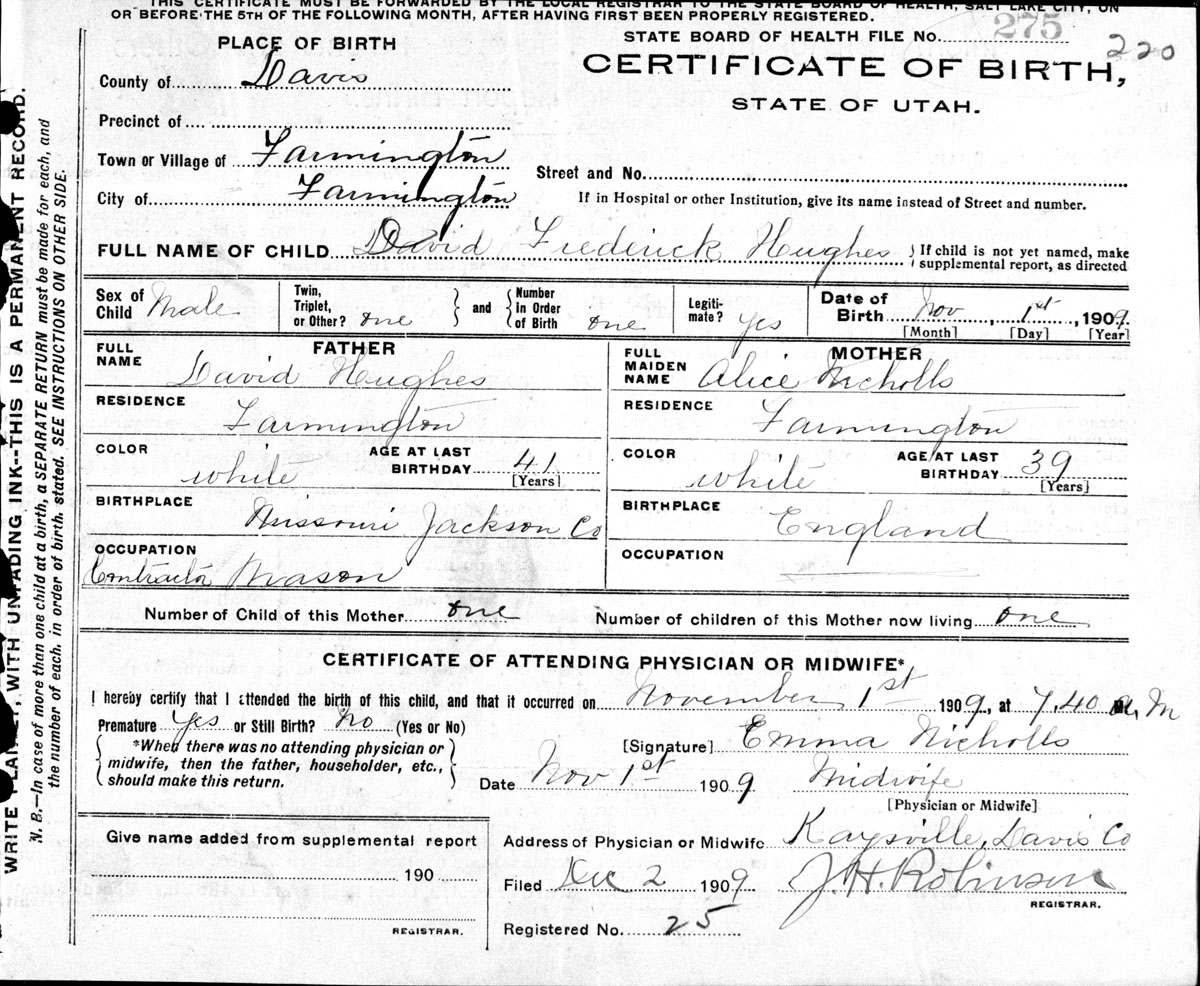 THIS CERTIFICATE MUST BE FORWARDED BY THE LOCAL REGISTRAR TO THE STATE BOARD OF HEALTH, SALT LAKE CITY, ON
OR BEFORE THE 5TH OF THE FOLLOWING MONTH, AFTER HAVING FIRST BEEN PROPERLY REGISTERED.
STATE BOARD OF HEALTH FILE No. 275
220
PLACE OF BIRTH
CERTIFICATE OF BIRTH,
STATE OF UTAH.
County of Davis
Precinct of
Town or Village of Farmington
Street and No.
City of Farmington
If in Hospital or other Institution, give its name instead of Street and number.
FULL NAME OF CHILD David Frederick Hughes } If child is not yet named, make supplemental report, as directed
Sex of Child Male
Twin, Triplet, or Other? one } and { Number in Order of Birth one
Legitimate? yes
Date of Birth Nov, 1st, 1909.
[Month] [Day] [Year]
FATHER
FULL NAME David Hughes
RESIDENCE Farmington
COLOR white
AGE AT LAST BIRTHDAY 41
[Years]
BIRTHPLACE Missouri Jackson Co
OCCUPATION Contractor Mason
MOTHER
FULL MAIDEN NAME Alice Nicholls
RESIDENCE Farmington
COLOR white
AGE AT LAST BIRTHDAY 39
[Years]
BIRTHPLACE England
OCCUPATION
Number of Child of this Mother one
Number of children of this Mother now living one
CERTIFICATE OF ATTENDING PHYSICIAN OR MIDWIFE*
I hereby certify that I attended the birth of this child, and that it occurred on November 1st 1909, at 7.40 a. M
Premature yes or Still Birth? No (Yes or No)
{ *When there was no attending physician or midwife, then the father, householder, etc., should make this return. }
[Signature] Emma Nicholls
Date Nov 1st 1909
Midwife
[Physician or Midwife]
Give name added from supplemental report
190
REGISTRAR.
Address of Physician or Midwife Kaysville, Davis Co
Filed Dec 2 1909
J. H. Robinson
REGISTRAR.
Registered No. 25
WRITE PLAINLY, WITH UNFADING INK--THIS IS A PERMANENT RECORD.
N. B.—In case of more than one child at a birth, a SEPARATE RETURN must be made for each, and
the number of each, in order of birth, stated. SEE INSTRUCTIONS ON OTHER SIDE.